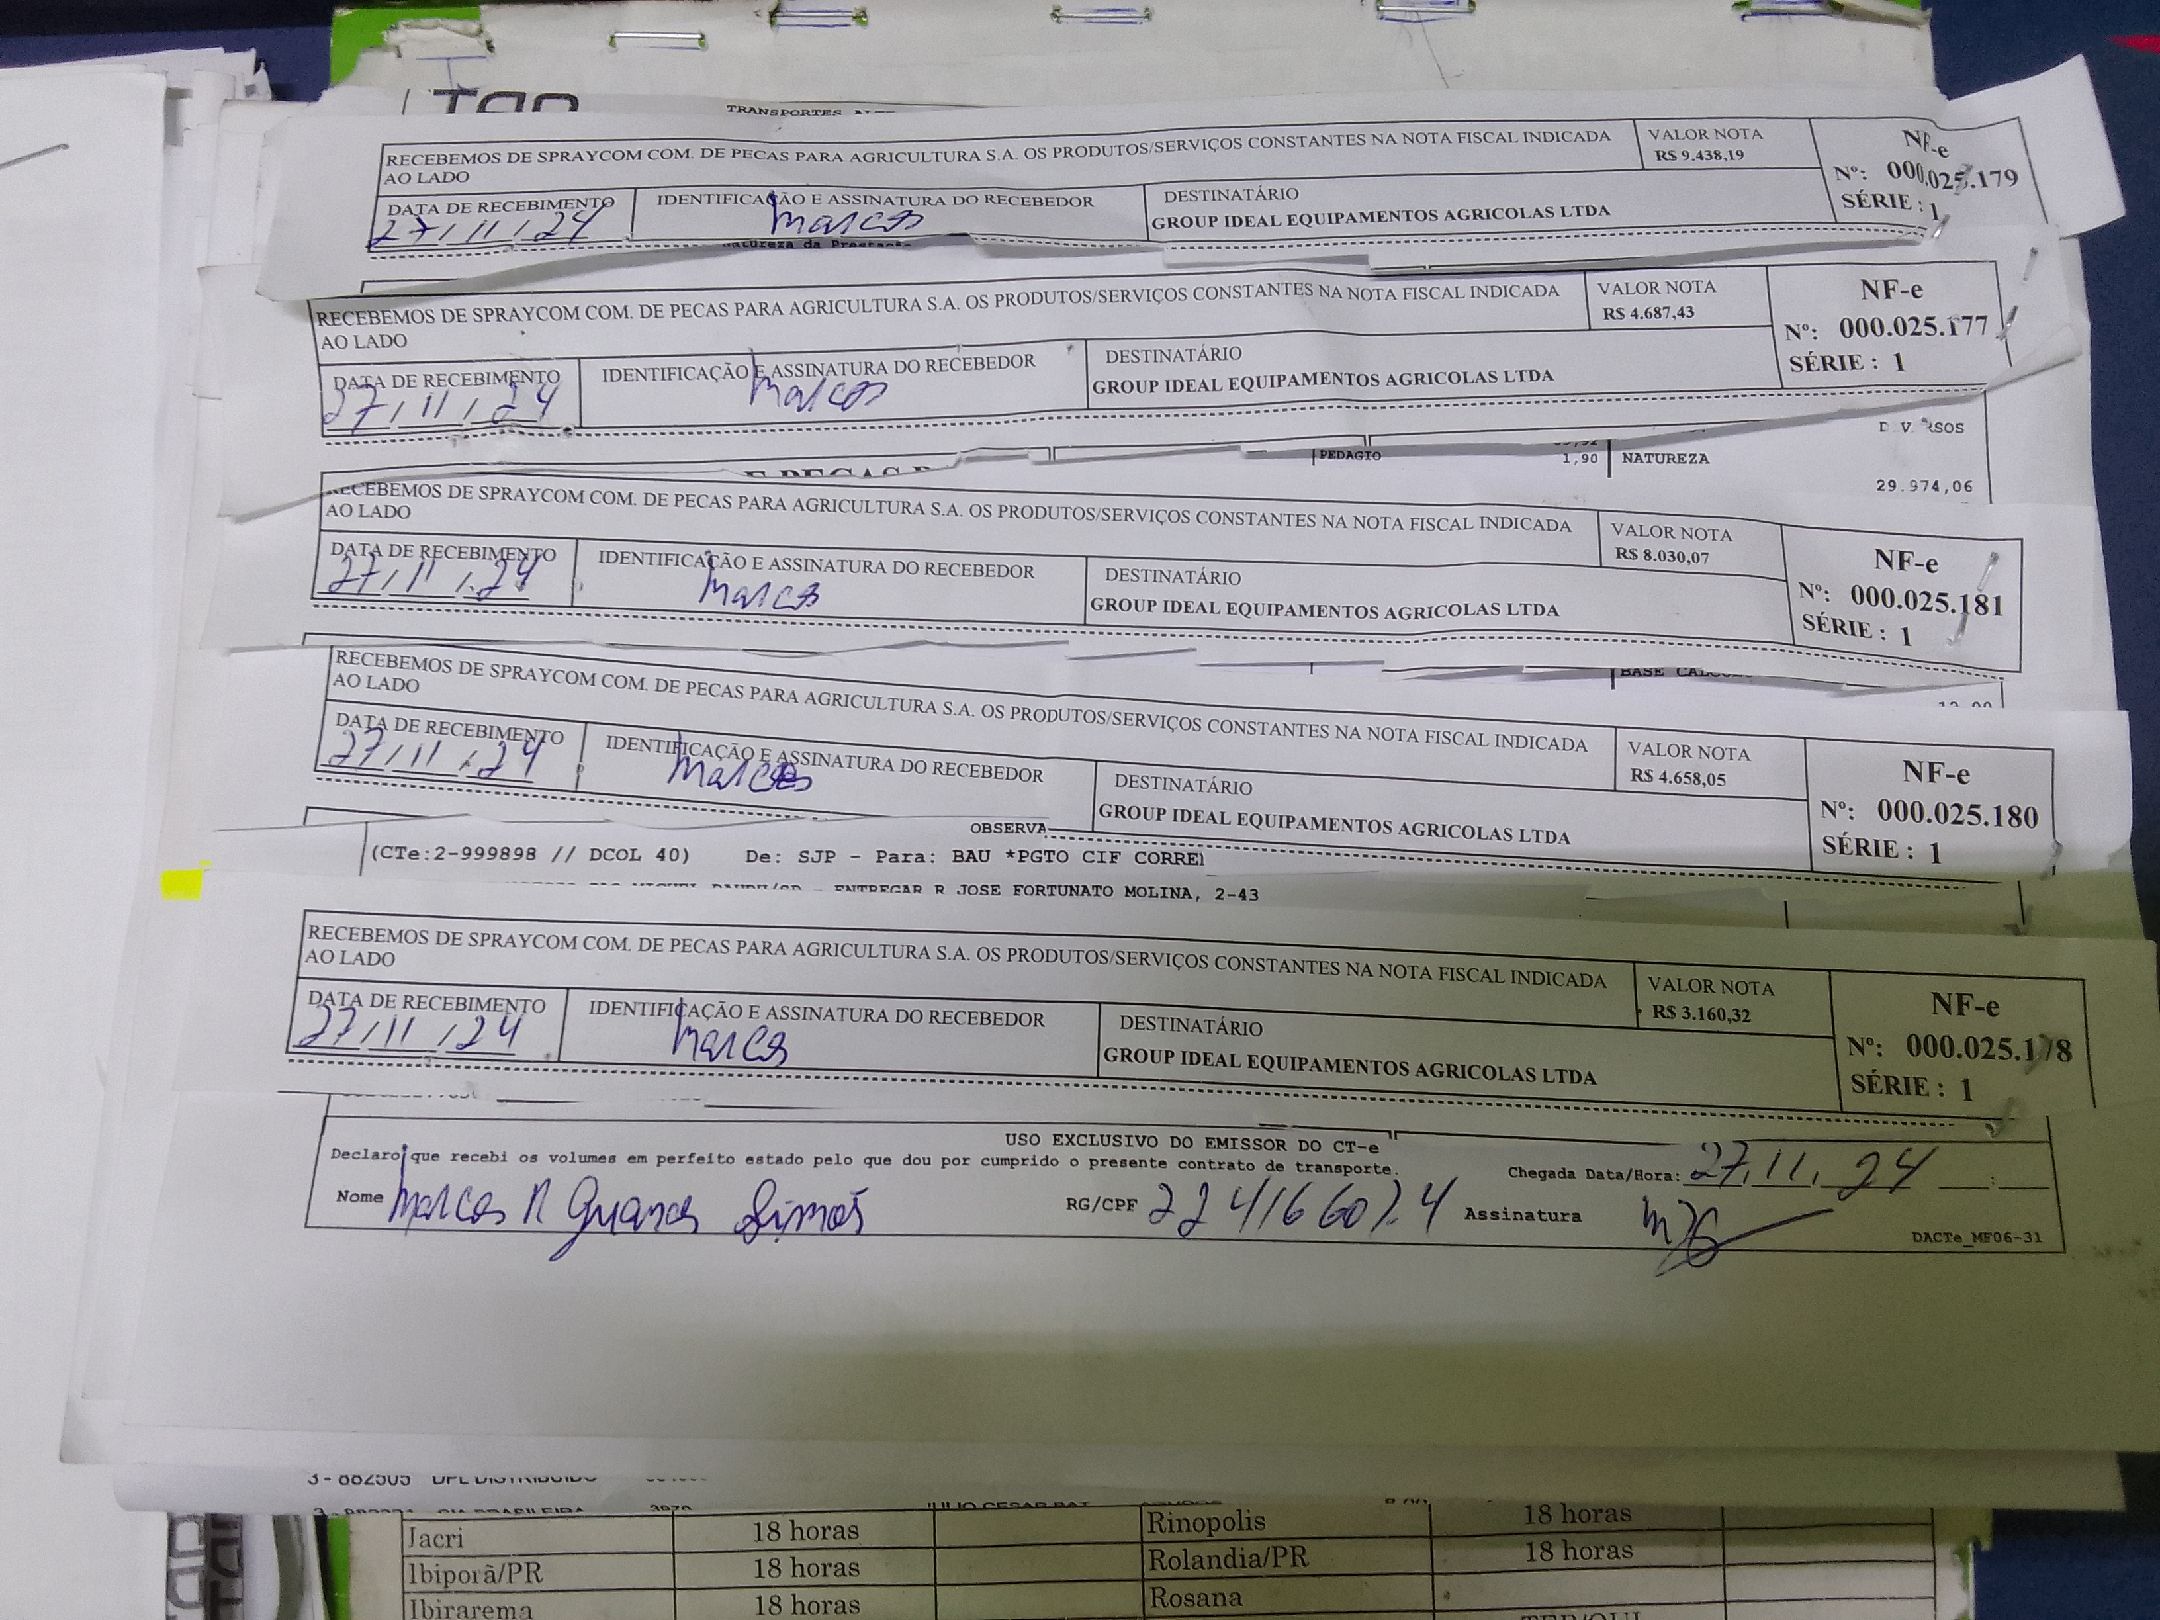 TRANSPORTES
RECEBEMOS DE SPRAYCOM COM. DE PECAS PARA AGRICULTURA S.A. OS PRODUTOS/SERVIÇOS CONSTANTES NA NOTA FISCAL INDICADA
AO LADO
VALOR NOTA
R$ 9.438,19
NF-e
Nº: 000.025.179
SÉRIE : 1
DATA DE RECEBIMENTO
27/11/24
IDENTIFICAÇÃO E ASSINATURA DO RECEBEDOR
Marcos
DESTINATÁRIO
GROUP IDEAL EQUIPAMENTOS AGRICOLAS LTDA
Natureza da Prestação
RECEBEMOS DE SPRAYCOM COM. DE PECAS PARA AGRICULTURA S.A. OS PRODUTOS/SERVIÇOS CONSTANTES NA NOTA FISCAL INDICADA
AO LADO
VALOR NOTA
R$ 4.687,43
NF-e
Nº: 000.025.177
SÉRIE : 1
DATA DE RECEBIMENTO
27/11/24
IDENTIFICAÇÃO E ASSINATURA DO RECEBEDOR
Marcos
DESTINATÁRIO
GROUP IDEAL EQUIPAMENTOS AGRICOLAS LTDA
PEDAGIO 1,90 NATUREZA
29.974,06
RECEBEMOS DE SPRAYCOM COM. DE PECAS PARA AGRICULTURA S.A. OS PRODUTOS/SERVIÇOS CONSTANTES NA NOTA FISCAL INDICADA
AO LADO
VALOR NOTA
R$ 8.030,07
NF-e
Nº: 000.025.181
SÉRIE : 1
DATA DE RECEBIMENTO
27/11/24
IDENTIFICAÇÃO E ASSINATURA DO RECEBEDOR
Marcos
DESTINATÁRIO
GROUP IDEAL EQUIPAMENTOS AGRICOLAS LTDA
RECEBEMOS DE SPRAYCOM COM. DE PECAS PARA AGRICULTURA S.A. OS PRODUTOS/SERVIÇOS CONSTANTES NA NOTA FISCAL INDICADA
AO LADO
VALOR NOTA
R$ 4.658,05
NF-e
Nº: 000.025.180
SÉRIE : 1
DATA DE RECEBIMENTO
27/11/24
IDENTIFICAÇÃO E ASSINATURA DO RECEBEDOR
Marcos
DESTINATÁRIO
GROUP IDEAL EQUIPAMENTOS AGRICOLAS LTDA
OBSERVA
(CTe:2-999898 // DCOL 40) De: SJP - Para: BAU *PGTO CIF CORREI
- ENTREGAR R JOSE FORTUNATO MOLINA, 2-43
RECEBEMOS DE SPRAYCOM COM. DE PECAS PARA AGRICULTURA S.A. OS PRODUTOS/SERVIÇOS CONSTANTES NA NOTA FISCAL INDICADA
AO LADO
VALOR NOTA
R$ 3.160,32
NF-e
Nº: 000.025.178
SÉRIE : 1
DATA DE RECEBIMENTO
27/11/24
IDENTIFICAÇÃO E ASSINATURA DO RECEBEDOR
Marcos
DESTINATÁRIO
GROUP IDEAL EQUIPAMENTOS AGRICOLAS LTDA
USO EXCLUSIVO DO EMISSOR DO CT-e
Declaro que recebi os volumes em perfeito estado pelo que dou por cumprido o presente contrato de transporte.
Chegada Data/Hora: 27/11/24
Nome Marcos R Simos RG/CPF Assinatura
DACTe_MF06-31
3 - 882505 DPL DISTRIBUIDO
Jacri 18 horas Rinopolis 18 horas
Ibiporã/PR 18 horas Rolandia/PR 18 horas
Ibirarema 18 horas Rosana